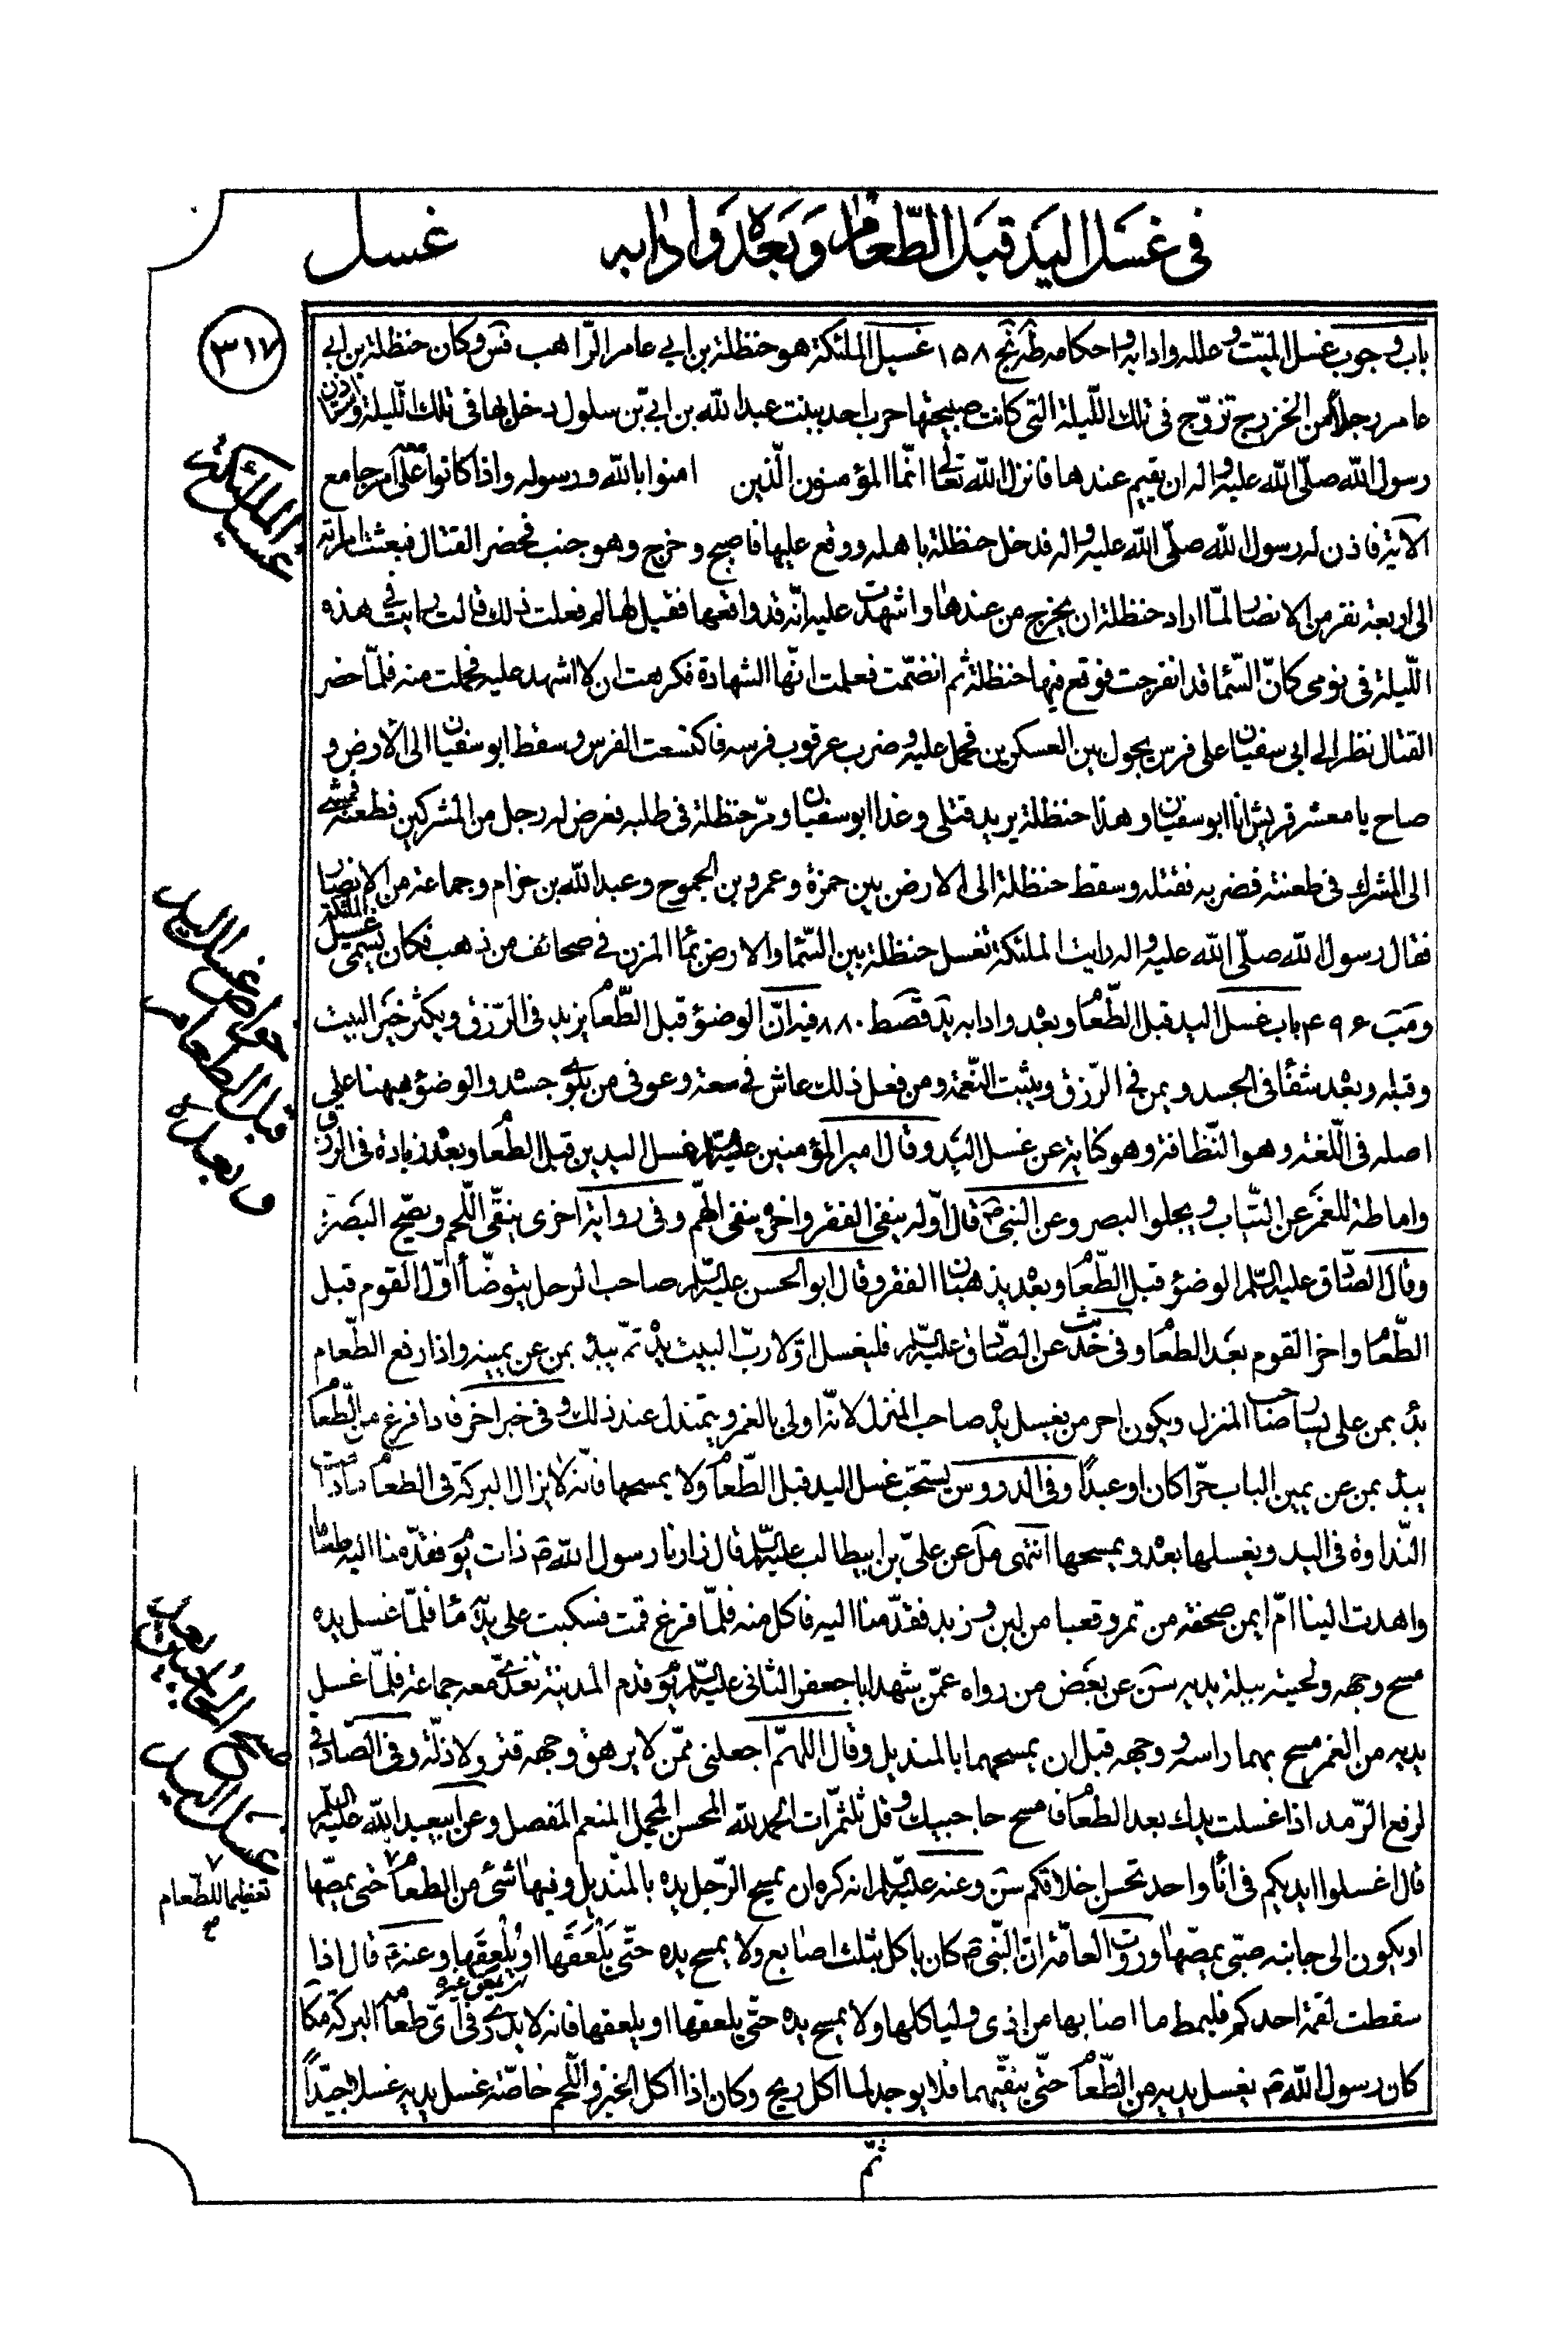 فى غسل اليد قبل الطّعام وبعده وادابه
غسل
٣١٧
باب وجوب غسل الميّت وعلله وادابه واحكامه طه نج ١٥٨ غسيل الملئكة هو حنظلة بن ابي عامر الرّاهب فس وكان حنظلة بن ابي
عامر رجلاً من الخزرج تزوّج فى تلك اللّيلة التى كانت صبيحتها حرب احد ببنت عبد الله بن ابىّ بن سلول دخل بها فى تلك اللّيلة واستاذن
رسول الله صلّى الله عليه واله ان يقيم عندها فانزل الله تعالى انّما المؤمنون الّذين امنوا بالله ورسوله واذا كانوا معه على امر جامع
الاية فاذن له رسول الله صلّى الله عليه واله فدخل حنظلة باهله ووقع عليها فاصبح وخرج وهو جنب فحضر القتال فبعثت امراته
الى اربعة نفر من الانصار لمّا اراد حنظلة ان يخرج من عندها واشهدت عليه انّه قد واقعها فقيل لها لم فعلت ذلك قالت رايت فى هذه
اللّيلة فى نومى كانّ السّماء قد انفرجت فوقع فيها حنظلة ثم انضمّت فعلمت انّها الشهادة فكرهت ان لا اشهد عليه فحملت منه فلمّا حضر
القتال نظر الى ابى سفيان على فرس يجول بين العسكرين فحمل عليه وضرب عرقوب فرسه فاكتسعت الفرس وسقط ابو سفيان الى الارض و
صاح يا معشر قريش انا ابو سفيان وهذا حنظلة يريد قتلى وعدا ابو سفيان ومرّ حنظلة فى طلبه فعرض له رجل من المشركين فطعنه فمشى
الى المشرك فى طعنته فضربه فقتله وسقط حنظلة الى الارض بين حمزة وعمرو بن الجموح وعبد الله بن حزام وجماعة من الانصار
فقال رسول الله صلّى الله عليه واله رايت الملئكة تغسل حنظلة بين السّماء والارض بماء المزن فى صحائف من ذهب فكان يسمّى غسيل الملئكة
ومب ٤٩٦ باب غسل اليد قبل الطّعام وبعده وادابه يد قصط ٨٨٠ فيه انّ الوضوء قبل الطّعام يزيد فى الرّزق ويكثر خير البيت
وقبله وبعده شفاء فى الجسد ويمن فى الرّزق ويثبت النّعمة ومن فعل ذلك عاش فى سعة وعوفى من بلوى جسده والوضوء هيهنا على
اصله فى اللّغة وهو النّظافة وهو كناية عن غسل اليد وقال امير المؤمنين عليه السّلم غسل اليدين قبل الطعام وبعده زيادة فى الرزق
واماطة للغمر عن الثّياب ويجلو البصر وعن النبى ص قال اوّله ينفى الفقر واخره ينفى الهمّ وفى رواية اخرى ينقّى اللّحم ويصحّ البصر
وقال الصّادق عليه السّلم الوضوء قبل الطّعام وبعده يذهبان الفقر وقال ابو الحسن عليه السّلم صاحب الرحل يتوضّأ اوّل القوم قبل
الطّعام واخر القوم بعد الطعام وفى حديث عن الصّادق عليه السّلم فليغسل اوّلا ربّ البيت يده ثمّ يبدء بمن عن يمينه واذا رفع الطّعام
بدء بمن على يسار صاحب المنزل ويكون اخر من يغسل يده صاحب المنزل لانّه اولى بالغمر ويتمندل عند ذلك وفى خبر اخر فاذا فرغ من الطّعام
يبدء بمن عن يمين الباب حرّا كان او عبداً وفى الدروس يستحبّ غسل اليد قبل الطّعام ولا يمسحها فانّه لا يزال البركة فى الطعام مادامت
النّداوة فى اليد ويغسلها بعده ويمسحها انتهى مل عن علىّ بن ابيطالب عليه السّلم قال زارنا رسول الله ص ذات يوم فقدّمنا اليه طعاما
واهدت الينا امّ ايمن صحفة من تمر وقعبا من لبن وزبد فقدّمنا اليه فاكل منه فلمّا فرغ قمت فسكبت على يديه ماء فلمّا غسل يده
مسح وجهه ولحيته ببلة يديه سن عن بعض من رواه عمّن شهد ابا جعفر الثانى عليه السّلم يوم قدم المدينة تغدّى معه جماعة فلمّا غسل
يديه من الغمر مسح بهما راسه ووجهه قبل ان يمسحهما بالمنديل وقال اللهمّ اجعلنى ممّن لا يرهق وجهه قتر ولا ذلّة وفى الصّادقى
لرفع الرّمد اذا غسلت يدك بعد الطعام فامسح حاجبيك وقل ثلث مرّات الحمد لله المحسن المجمل المنعم المفضل وعن ابيعبد الله عليه السّلم
قال اغسلوا ايديكم فى اناء واحد تحسن اخلاقكم سن وعنه عليه السّلم انه كره ان يمسح الرّجل يده بالمنديل وفيها شىء من الطعام ٧ حتى يمصّها
او يكون الى جانبه صبىّ يمصّها وروت العامّة انّ النّبى ص كان ياكل بثلث اصابع ولا يمسح يده حتّى يَلْعَقَها او يُلْعِقَها وعنه ص قال اذا
سقطت لقمة احدكم فليمط ما اصابها من اذى ولياكلها ولا يمسح يده حتّى يلعقها او يلعقها فانه لا يدرى فى اىّ طعامه البركة مكا
كان رسول الله ص يغسل يديه من الطّعام حتّى ينقّيهما فلا يوجد لما اكل ريح وكان اذا اكل الخبز واللّحم خاصّة غسل يديه غسلا جيّداً
ثمّ
غسيل الملائكة
خواص غسل اليد
قبل الطعام
وبعده
مسح الحاجبين بعد
غسل اليد
٧
تعظيما للطّعام